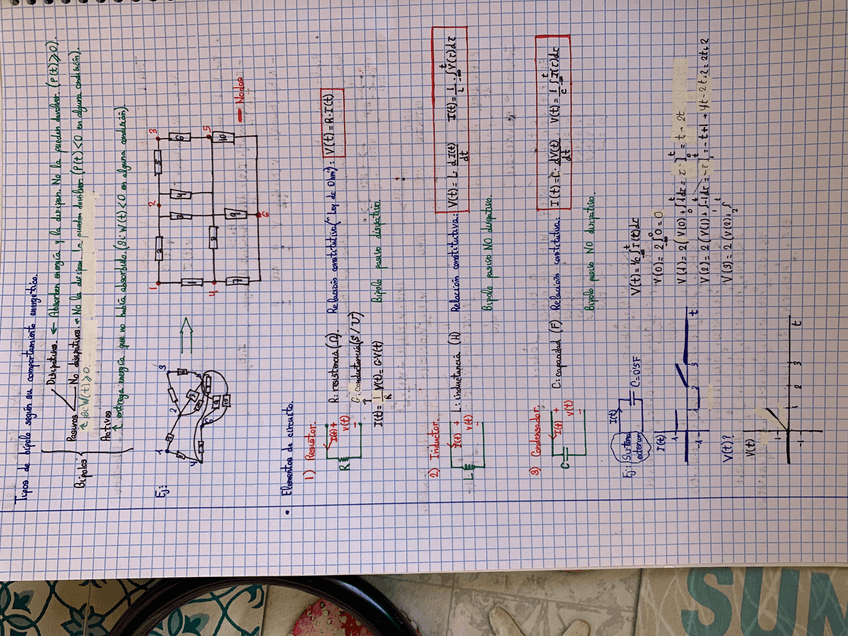 Tipos de bipolo según su comportamiento energético.
Bipolos
Pasivos
↑ Si: W(t) ≥ 0
Disipativos. ← Absorben energía y la disipan. No la pueden devolver. (P(t) ≥ 0).
No disipativos. ← No la disipan. La pueden devolver. (P(t) < 0 en alguna condición).
Activos
↑ entrega energía que no había absorbido. (Si: W(t) < 0 en alguna condición).
Ej:
1
2
3
4
⇒
1
2
3
4
5
6
Nodos
• Elementos de circuito.
1) Resistor.
R
I(t) +
V(t) -
R: resistencia (Ω).
G: conductancia (S/℧)
Relación constitutiva ("Ley de Ohm"): V(t) = R · I(t)
I(t) = 1/R V(t) = G·V(t)
Bipolo pasivo disipativo
2) Inductor.
L
I(t) +
V(t) -
L: inductancia (H)
Relación constitutiva: V(t) = L · dI(t)/dt
I(t) = 1/L · ∫V(τ)dτ
Bipolo pasivo NO disipativo.
3) Condensador.
C
I(t) +
V(t) -
C: capacidad (F)
Relación constitutiva: I(t) = C · dV(t)/dt
V(t) = 1/C ∫I(τ)dτ
Bipolo pasivo NO disipativo.
Ej: Sistema exterior
I(t)
C = 0'5F
I(t)
1
-1
1
2
3
t
V(t)?
V(t)
1
-1
1
2
3
t
V(0) = 2∫0 = 0